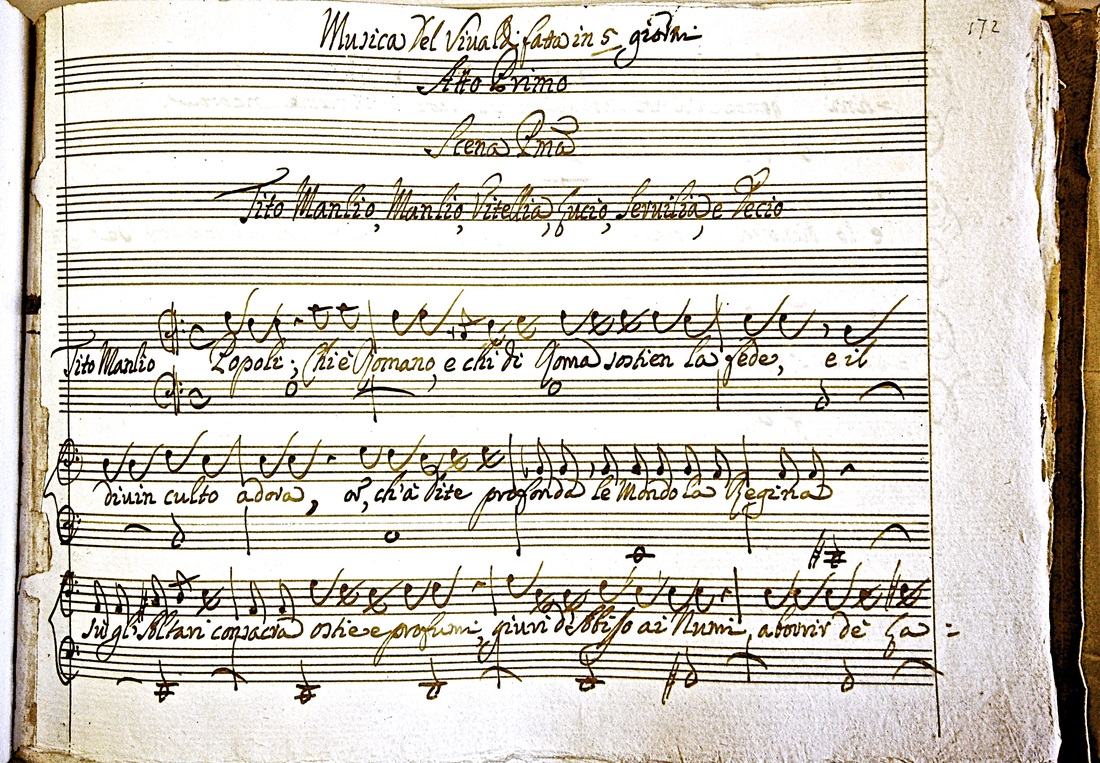 172
Musica Del Vivaldi fatta in 5 giorni
Atto Primo
Scena Pma
Tito Manlio, Manlio, Vitellia, Lucio, Seruilia, e Decio
Tito Manlio Popoli; Chi è Romano, e chi di Roma sostien la fede, e il
diuin culto adora, or, ch'à Dite profonda le Mondo la Regina
sù gl'Altari consacra ostie e profumi, giuri d'Abisso ai Numi, aborrir de La =